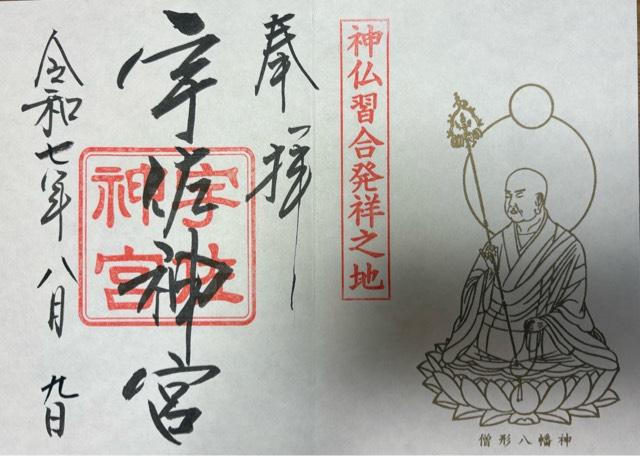 神仏習合発祥之地
僧形八幡神
奉拝
宇佐神宮
宇佐
神宮
令和七年八月九日